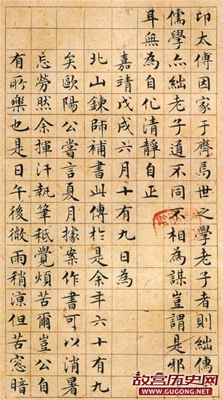 卬太傅因家于齊焉世之學老子者則絀儒
儒學亦絀老子道不同不相為謀豈謂是邪
耳無為自化清靜自正
嘉靖戊戌六月十有九日為
北山錬師補書此傳於是余年六十有九
矣歐陽公嘗言夏月據案作書可以消暑
忘勞然余揮汗執筆秪覺煩苦爾豈公自
有所樂也是日午後微雨稍涼但苦窓暗
故宫历史网